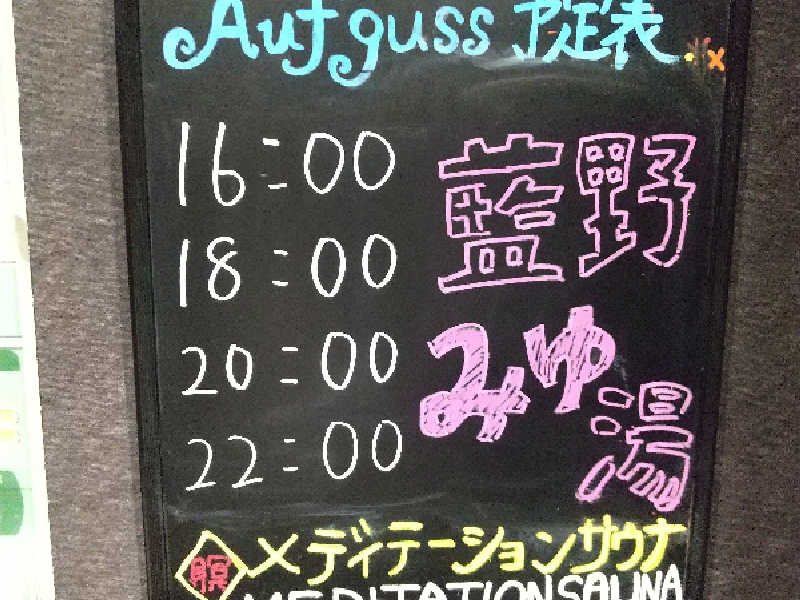 Aufguss 予定表
16:00
18:00
20:00
22:00
藍野
みゆ
湯
瞑 メディテーションサウナ
MEDITATION SAUNA